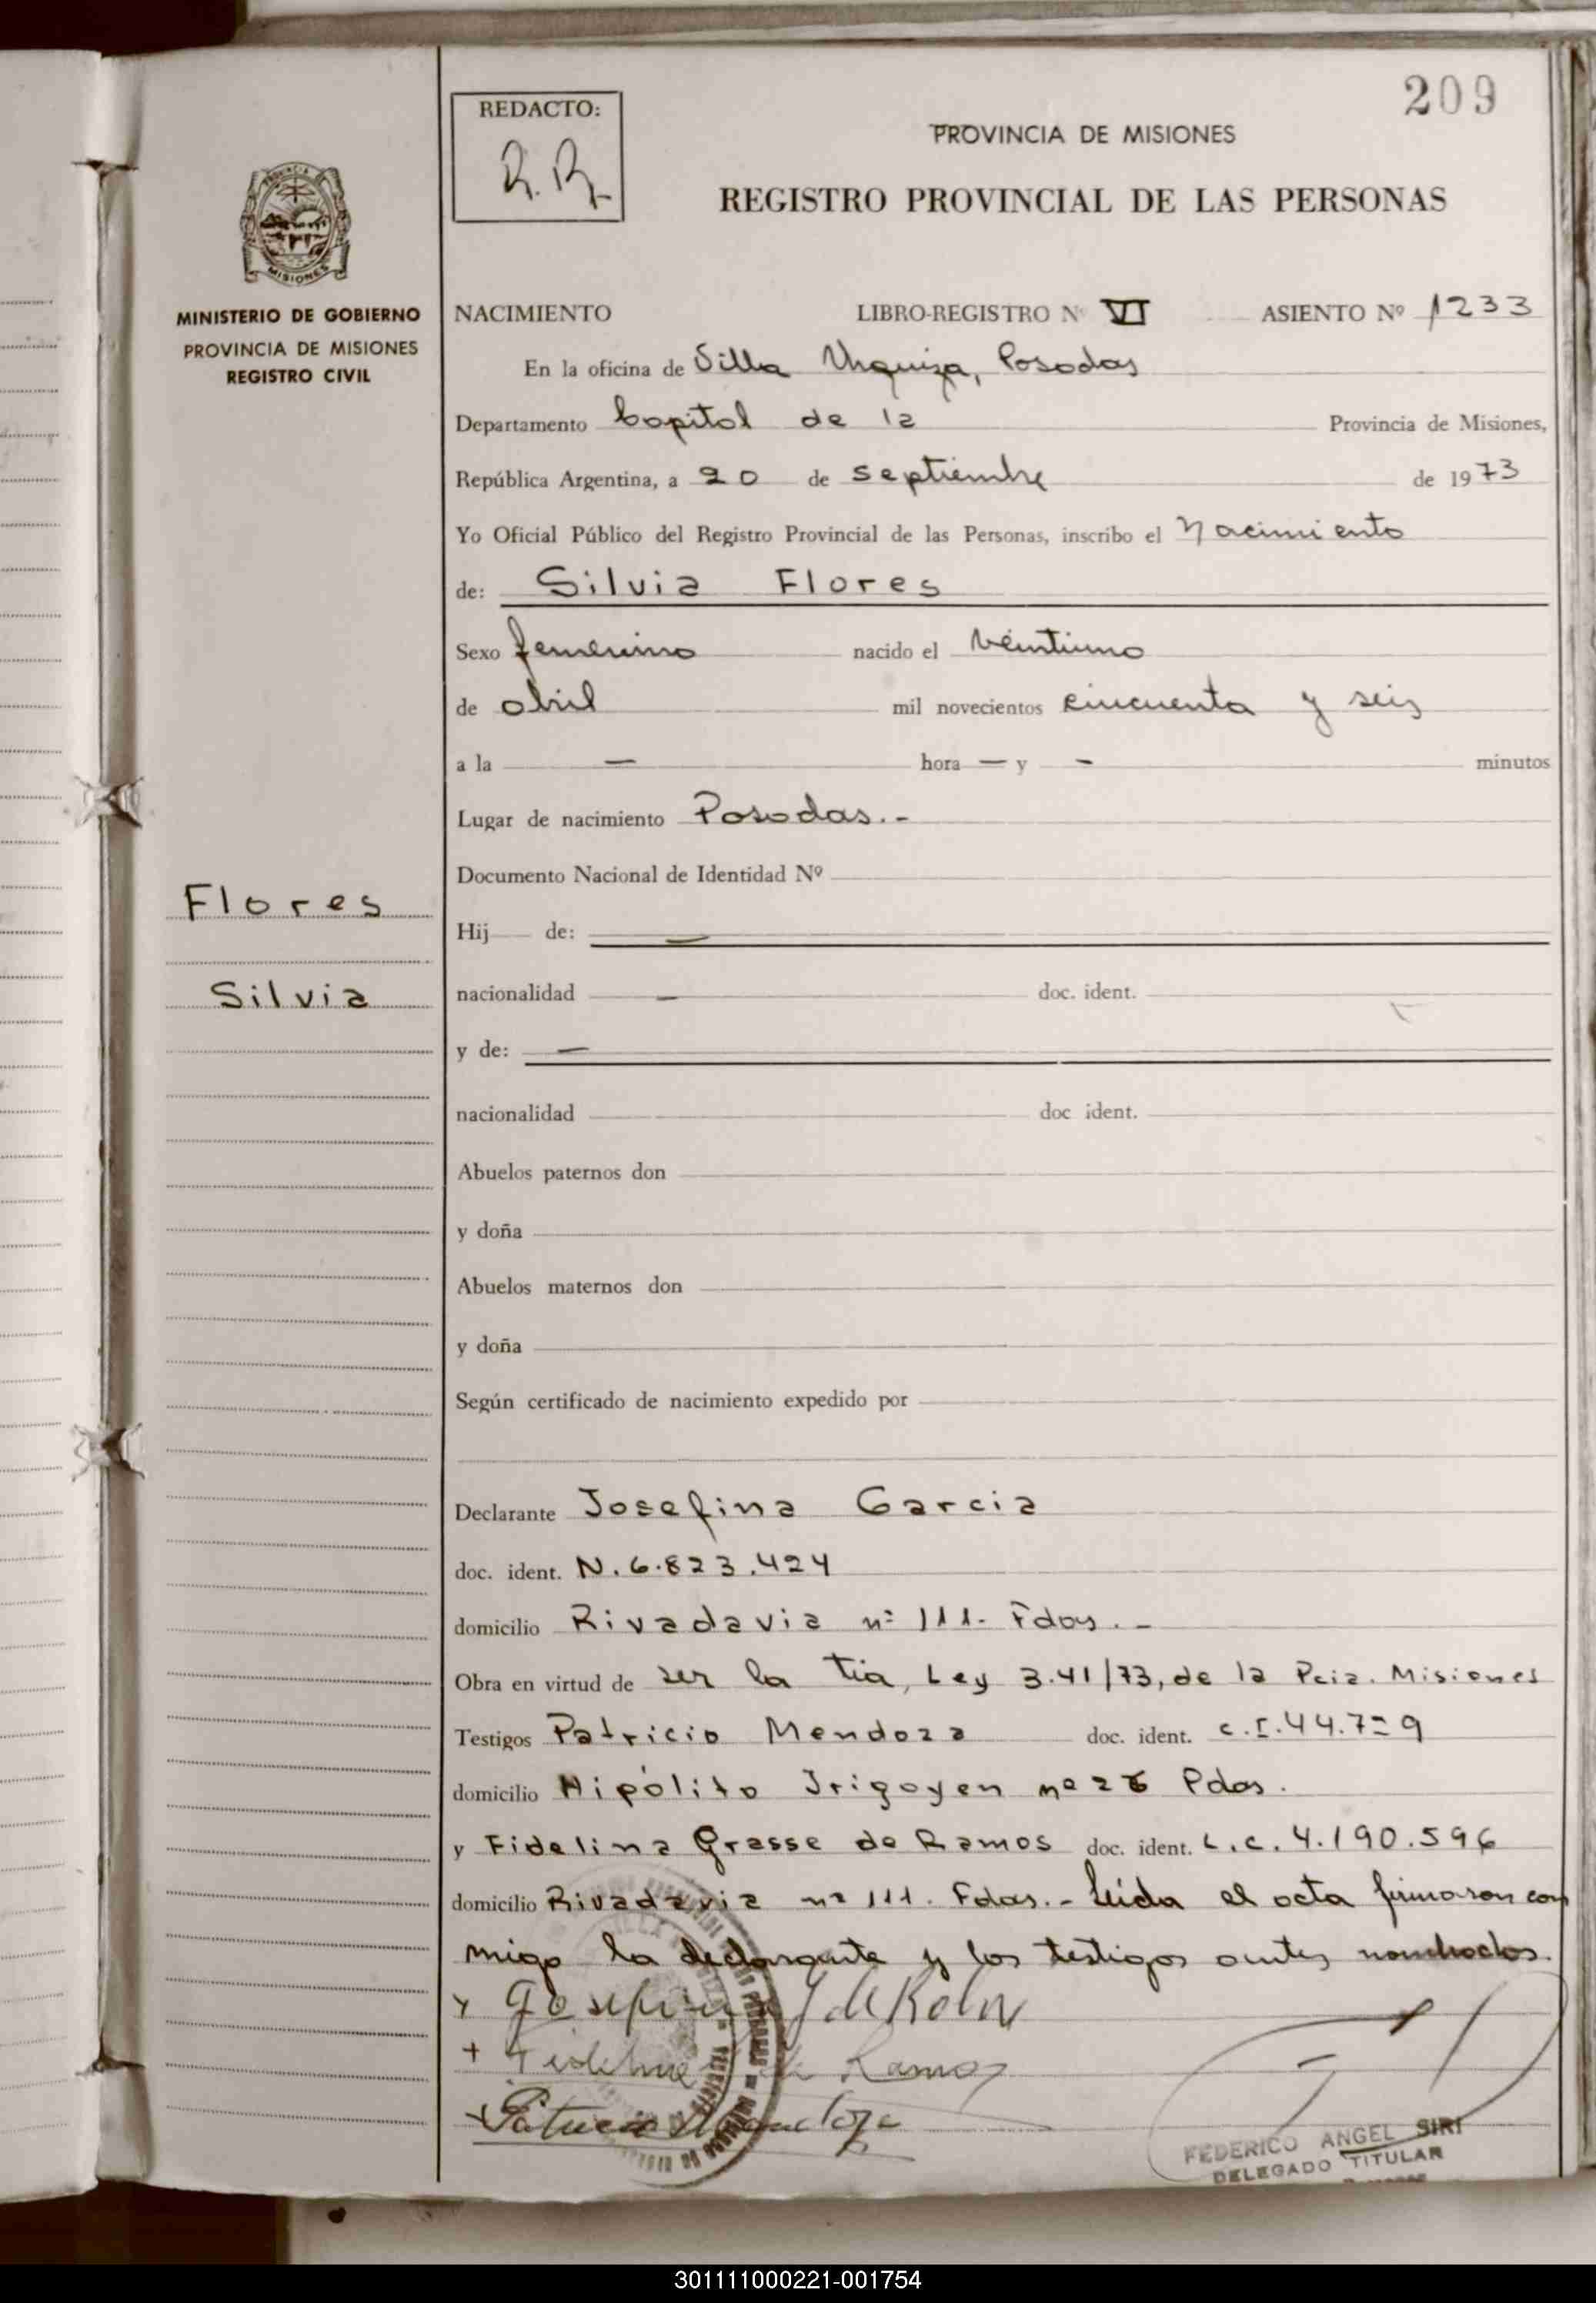 209
REDACTO:
R.R.
PROVINCIA DE MISIONES
REGISTRO PROVINCIAL DE LAS PERSONAS
MISIONES
MINISTERIO DE GOBIERNO
PROVINCIA DE MISIONES
REGISTRO CIVIL
NACIMIENTO LIBRO-REGISTRO Nº VI ASIENTO Nº 1233
En la oficina de Villa Urquiza, Posadas
Departamento Capital de la Provincia de Misiones,
República Argentina, a 20 de septiembre de 1973
Yo Oficial Público del Registro Provincial de las Personas, inscribo el Nacimiento
de: Silvia Flores
Sexo femenino nacido el veintiuno
de abril mil novecientos cincuenta y seis
a la — hora — y - minutos
Lugar de nacimiento Posadas.-
Documento Nacional de Identidad Nº
Flores
Hij de: —
Silvia
nacionalidad — doc. ident.
y de: —
nacionalidad doc ident.
Abuelos paternos don
y doña
Abuelos maternos don
y doña
Según certificado de nacimiento expedido por
Declarante Josefina Garcia
doc. ident. N. 6.823.424
domicilio Rivadavia nº 111- Pdas.-
Obra en virtud de ser la tia, Ley 3.41/73, de la Pcia. Misiones
Testigos Patricio Mendoza doc. ident. c.I. 44.729
domicilio Hipólito Irigoyen nº 26 Pdas.
y Fidelina Grasse de Ramos doc. ident. L.c. 4.190.596
domicilio Rivadavia nº 111. Pdas.- Leida el acta firmaron con
migo la declarante y los testigos antes nombrados.
Josefina G de
Fidelina de Ramos
Patricio Mendoza
FEDERICO ANGEL SIRI
DELEGADO TITULAR
301111000221-001754